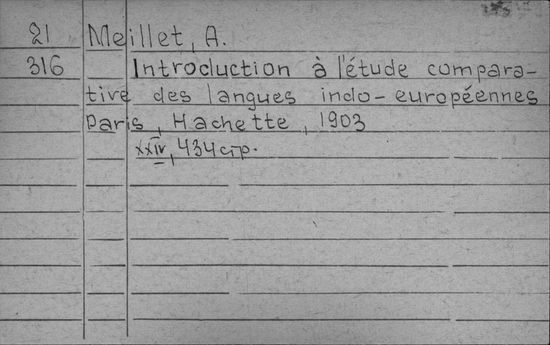 21 Meillet, A.
316 Introduction à l'étude compara-
tive des langues indo-européennes
Paris, Hachette, 1903
XXIV, 434 стр.